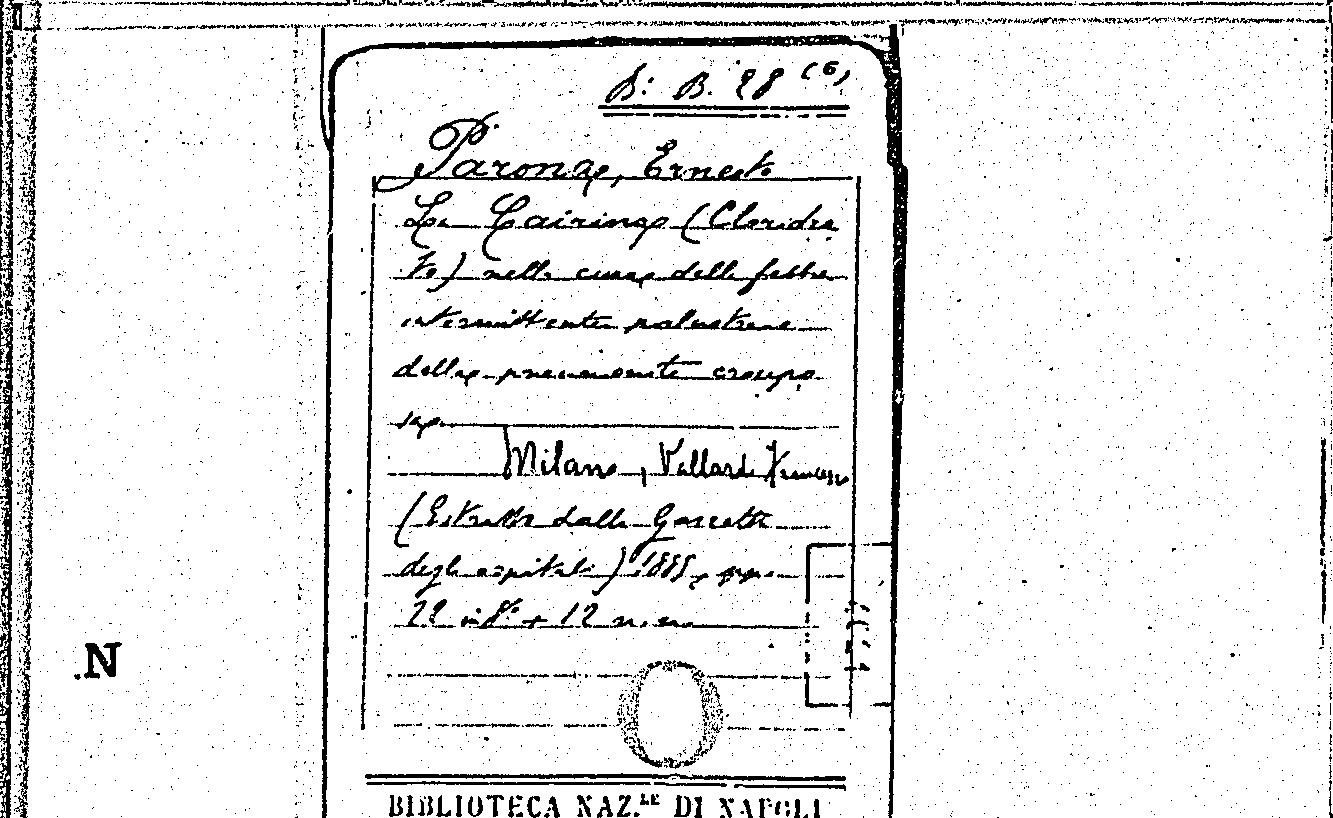 B. 28 (6)
Parona, Ernesto
La Cairina (Cloridra
to) nella cura delle febbre
intermittente palustre e
della pneumonite croupo
sa
Milano, Vallardi Francesco
(Estratto dalla Gazzetta
degli ospitali) 1885, pp.
22 in 8° + 12 n. n.
N
BIBLIOTECA NAZ.LE DI NAPOLI